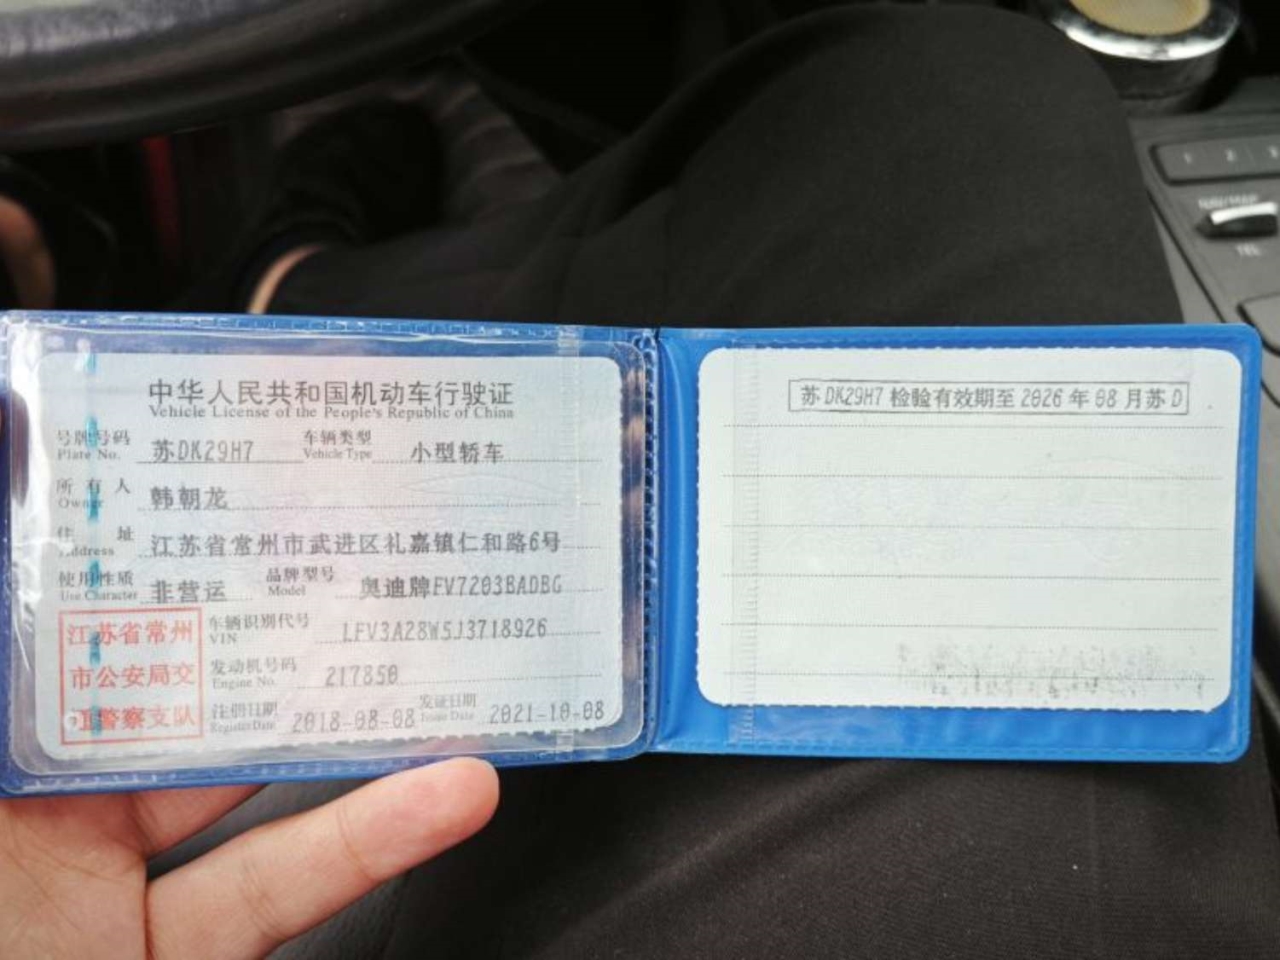 中华人民共和国机动车行驶证
Vehicle License of the People's Republic of China
号牌号码 Plate No. 苏DK29H7 车辆类型 Vehicle Type 小型轿车
所有人 Owner 韩朝龙
住址 Address 江苏省常州市武进区礼嘉镇仁和路6号
使用性质 Use Character 非营运 品牌型号 Model 奥迪牌FV7203BADBG
江苏省常州
市公安局交
警察支队
车辆识别代号 VIN LFV3A28W5J3718926
发动机号码 Engine No. 217850
注册日期 Register Date 2018-08-08 发证日期 Issue Date 2021-10-08
苏DK29H7 检验有效期至 2026 年 08 月苏 D
1 2 3
NAVI/MAP
TEL